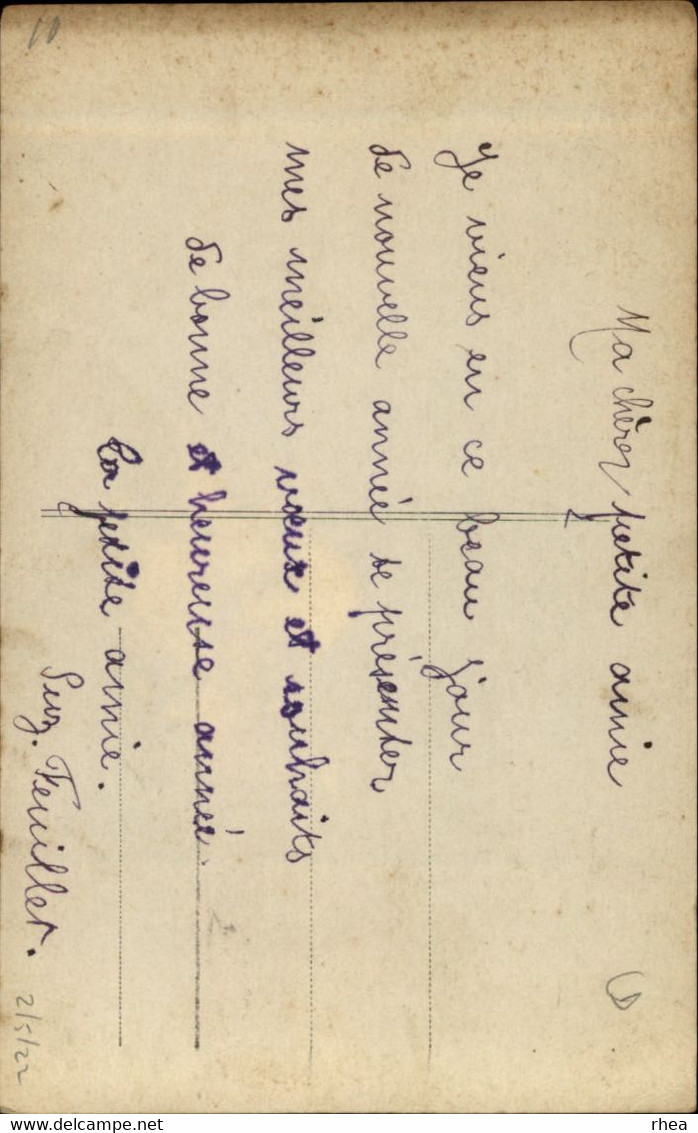 Ma chère petite amie
Je viens en ce beau jour
de nouvelle année te présenter
mes meilleurs vœux et souhaits
de bonne et heureuse année.
Ta petite amie.
Suz. Feuillet.
2/5/22
10
rhea